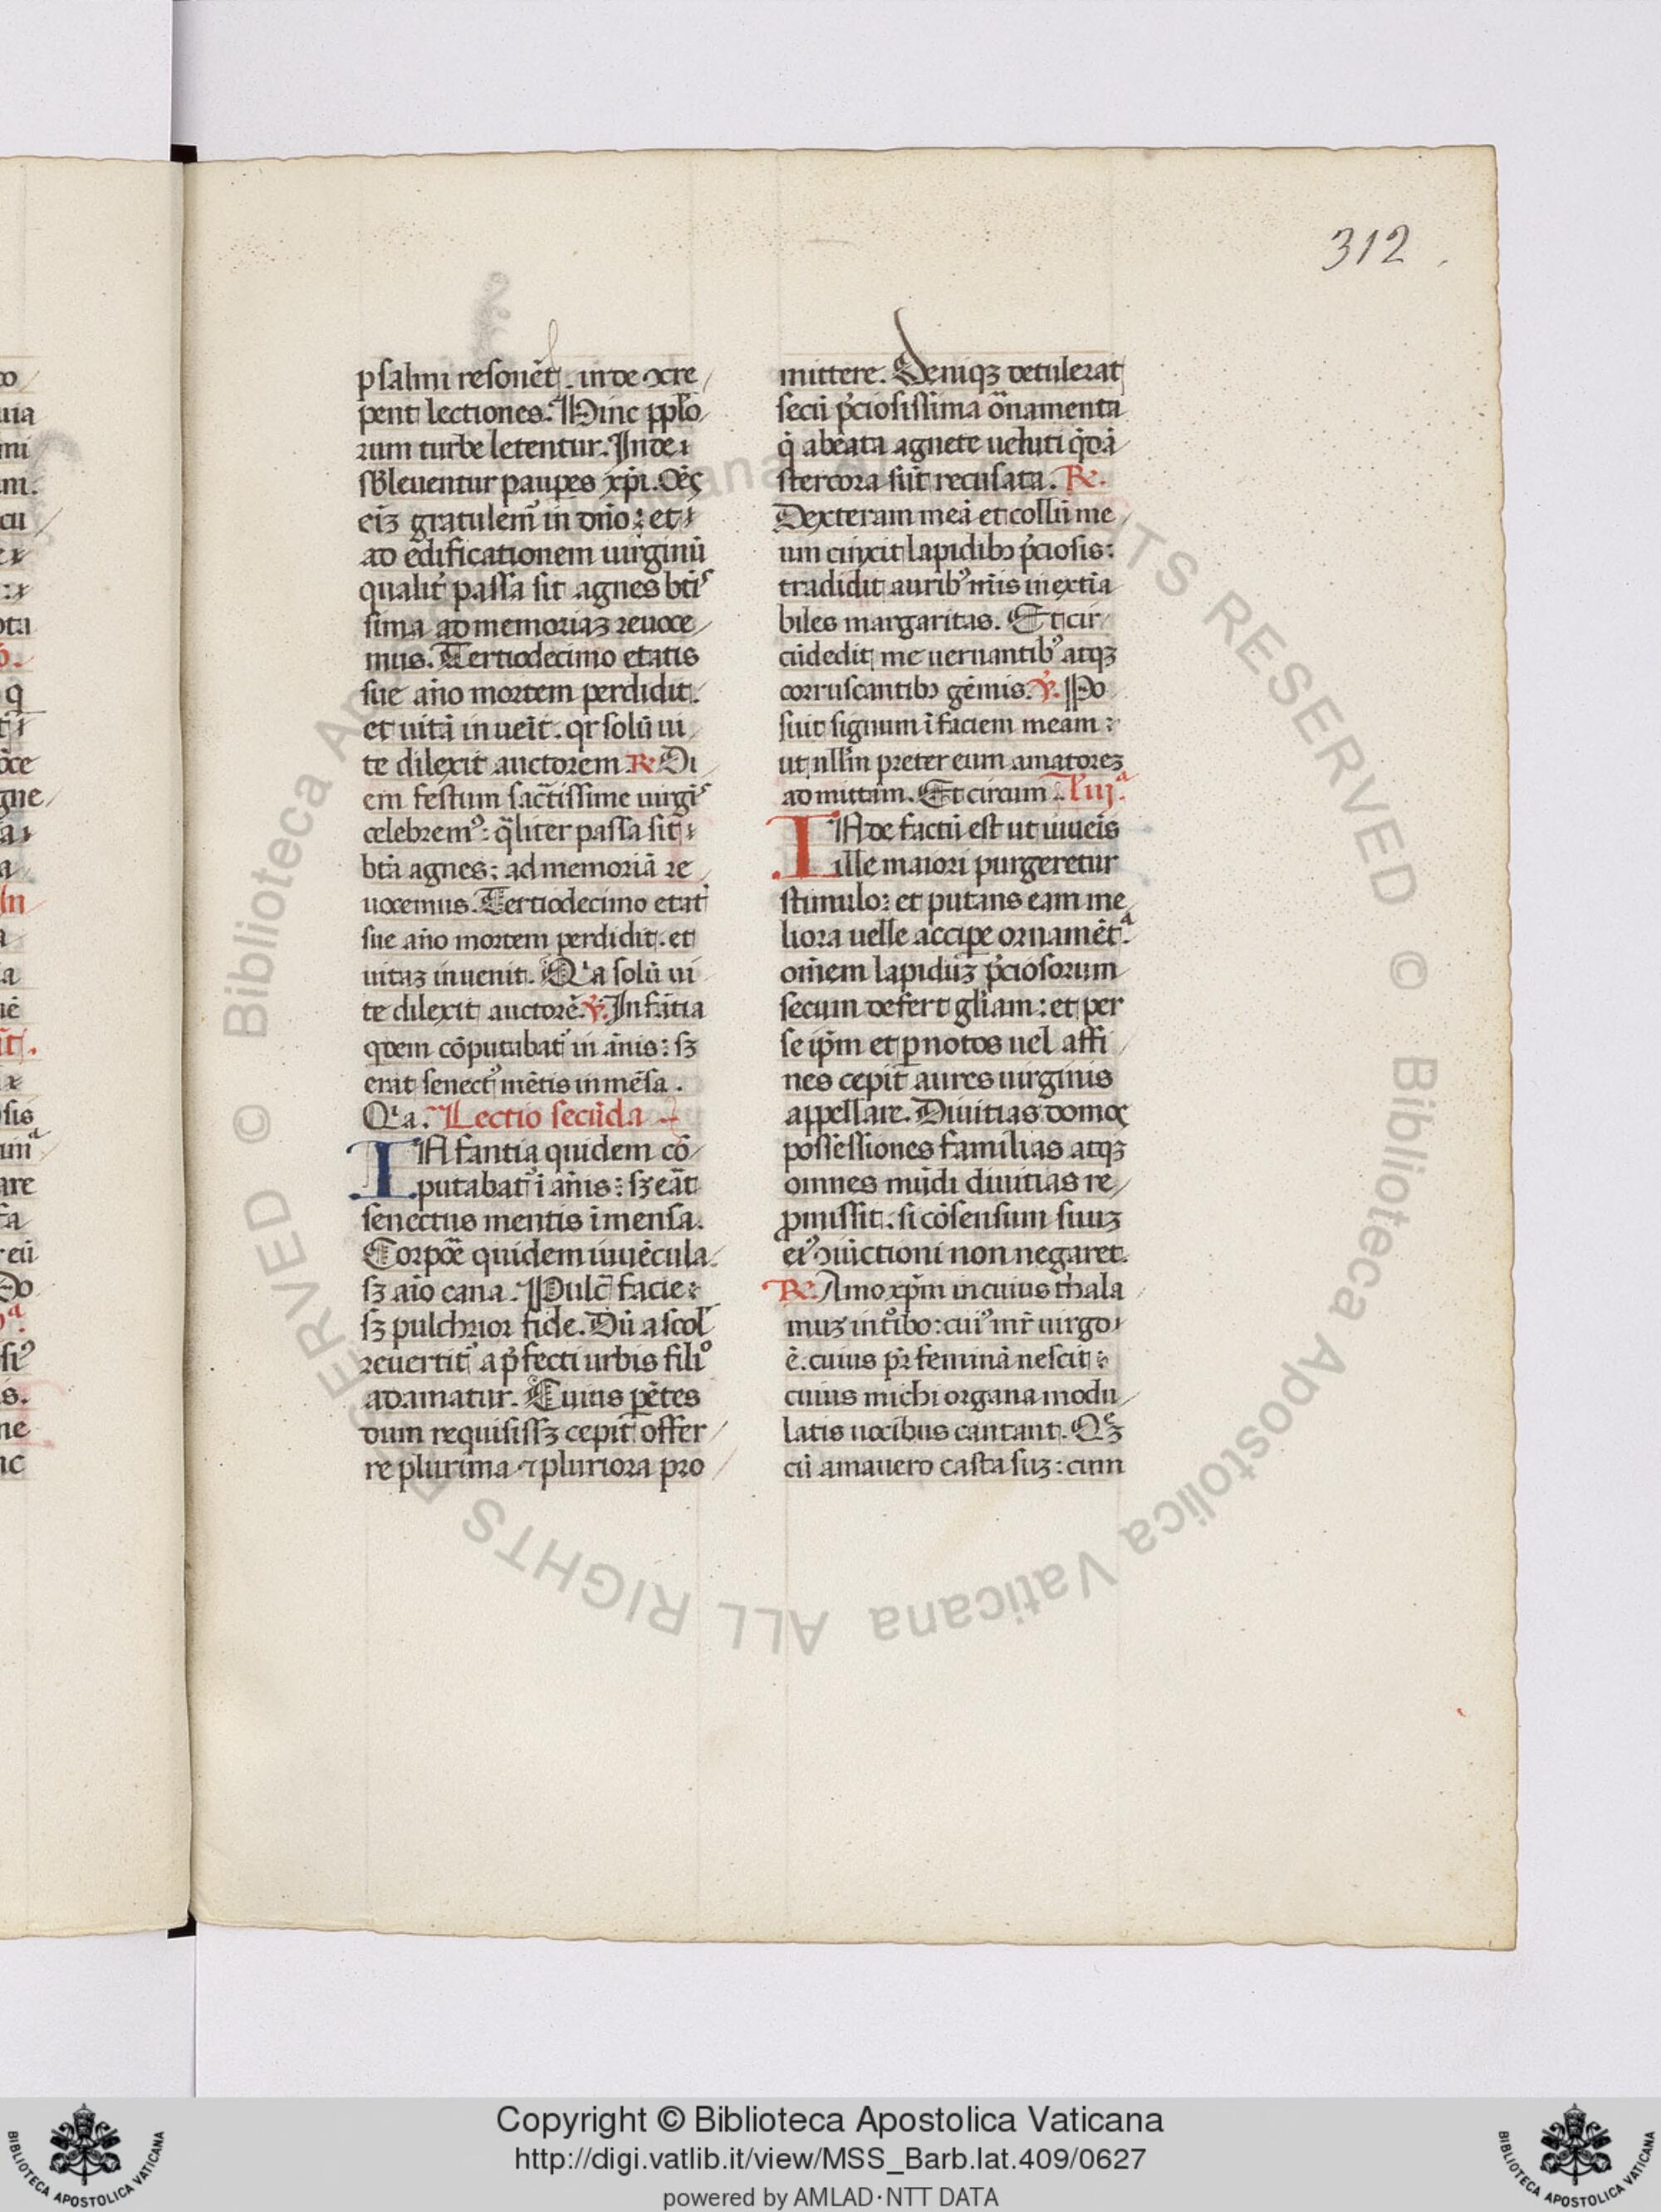 312
psalmi resonēt. inde ↄcre
pent lectiones. Hinc pplo
rum turbe letentur. Inde
sbleuentur paupes xpi. Oēs
eiꝫ gratulem᷑ in dño: et
ad edificationem uirginū
qualit᷑ passa sit agnes bti
sima ad memoriaꝫ reuoce
mus. Tertiodecimo etatis
sue año mortem perdidit.
et uitā inueīt. qr solū ui
te dilexit auctorem ℞ Di
em festum sactissime uirgiˢ
celebremꝰ: qͣliter passa sit
btā agnes: ad memoriā re
uocemus. Tertiodecimo etat
sue año mortem perdidit. et
uitaꝫ inuenit. Qͥa solū ui
te dilexit auctorē. ℣. Infātia
qͥdem cōputabat᷑ in ānis: sꝫ
erat senectꝰ mētis inmēsa.
Qͥa. Lectio secūda
INfantia quidem cō
putabat᷑ ī añis: sꝫ eāt
senectus mentis īmensa.
Corpoē quidem iuuēcula.
sꝫ aīo cana. Pulc̄ facie:
sꝫ pulchrior fide. Dū a scol
reuertit᷑ a p̄fecti urbis filiº
adamatur. Cuius pētes
dum requisissꝫ cepit offer
re plurima ⁊ pluriora pro
mittere. Deniqꝫ detulerat
secū p̄ciosissima oͬnamenta
q̄ abeata agnete ueluti qͣdā
stercora sūt recusata. ℞.
Dexteram meā et collū me
um cinxit lapidibꝫ p̄ciosis:
tradidit auribꝰ meis inextia
biles margaritas. Et cir
cūdedit me uernantibꝰ atqꝫ
corruscantibꝫ gēmis. ℣. Po
suit signum ī faciem meam:
ut nllm preter eum amatoreꝫ
admittam. Et circum. L iijª.
INde factū est ut iuueīs
ille maiori purgeretur
stimulo: et putans eam me
liora uelle accipe ornamētª.
omēm lapidūꝫ p̄ciosorum
secum defert gliam: et per
se ip̄m et ꝑ notos uel affi
nes cepit aures uirginis
appellare. Diuitias domoꝝ
possessiones familias atqꝫ
omnes mūdi diuitias re
ꝓmissit. si cōsensum suuꝫ
eiꝰ ↄiūctioni non negaret.
℞. Amo xp̄m in cuius thala
muꝫ intͦibo: cuiꝰ mr̄ uirgo
ē. cuius pr̄ feminā nescit:
cuius michi organa modu
latis uocibus cantant. Qͤꝫ
cū amauero casta suꝫ: cum
Copyright © Biblioteca Apostolica Vaticana
http://digi.vatlib.it/view/MSS_Barb.lat.409/0627
powered by AMLAD·NTT DATA